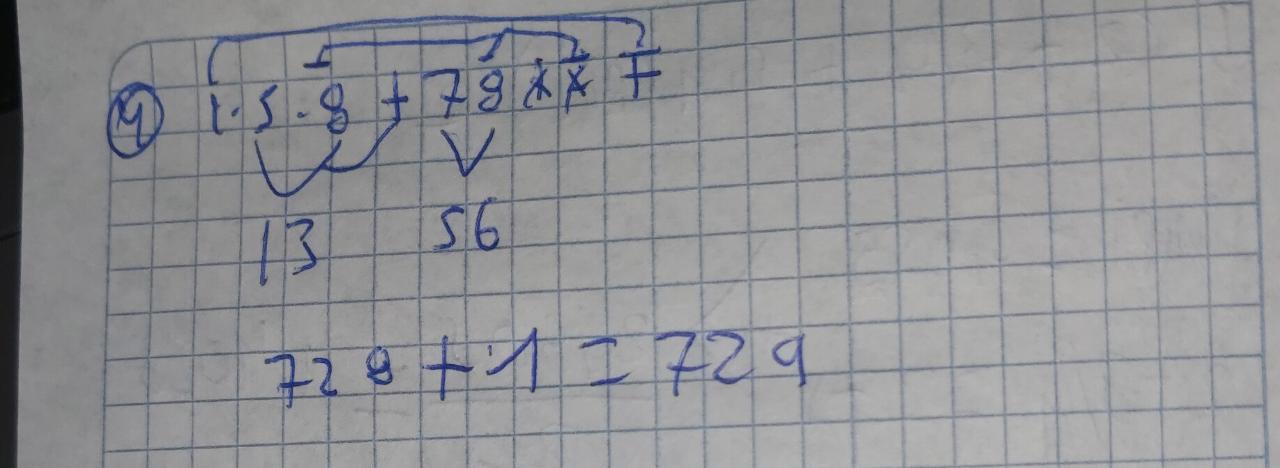 4 1 5 8 + 7 8 * * +
13 56
728 + 1 = 729